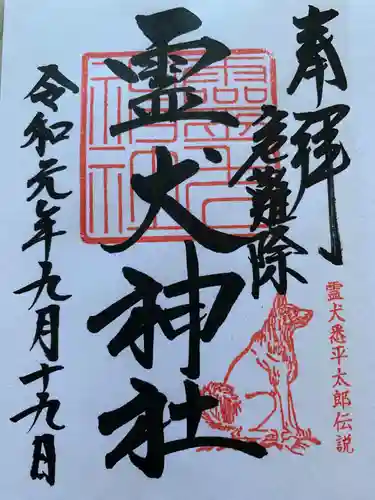 奉拝
危難除
霊犬神社
令和元年九月十九日
霊犬神社
霊犬悉平太郎伝説